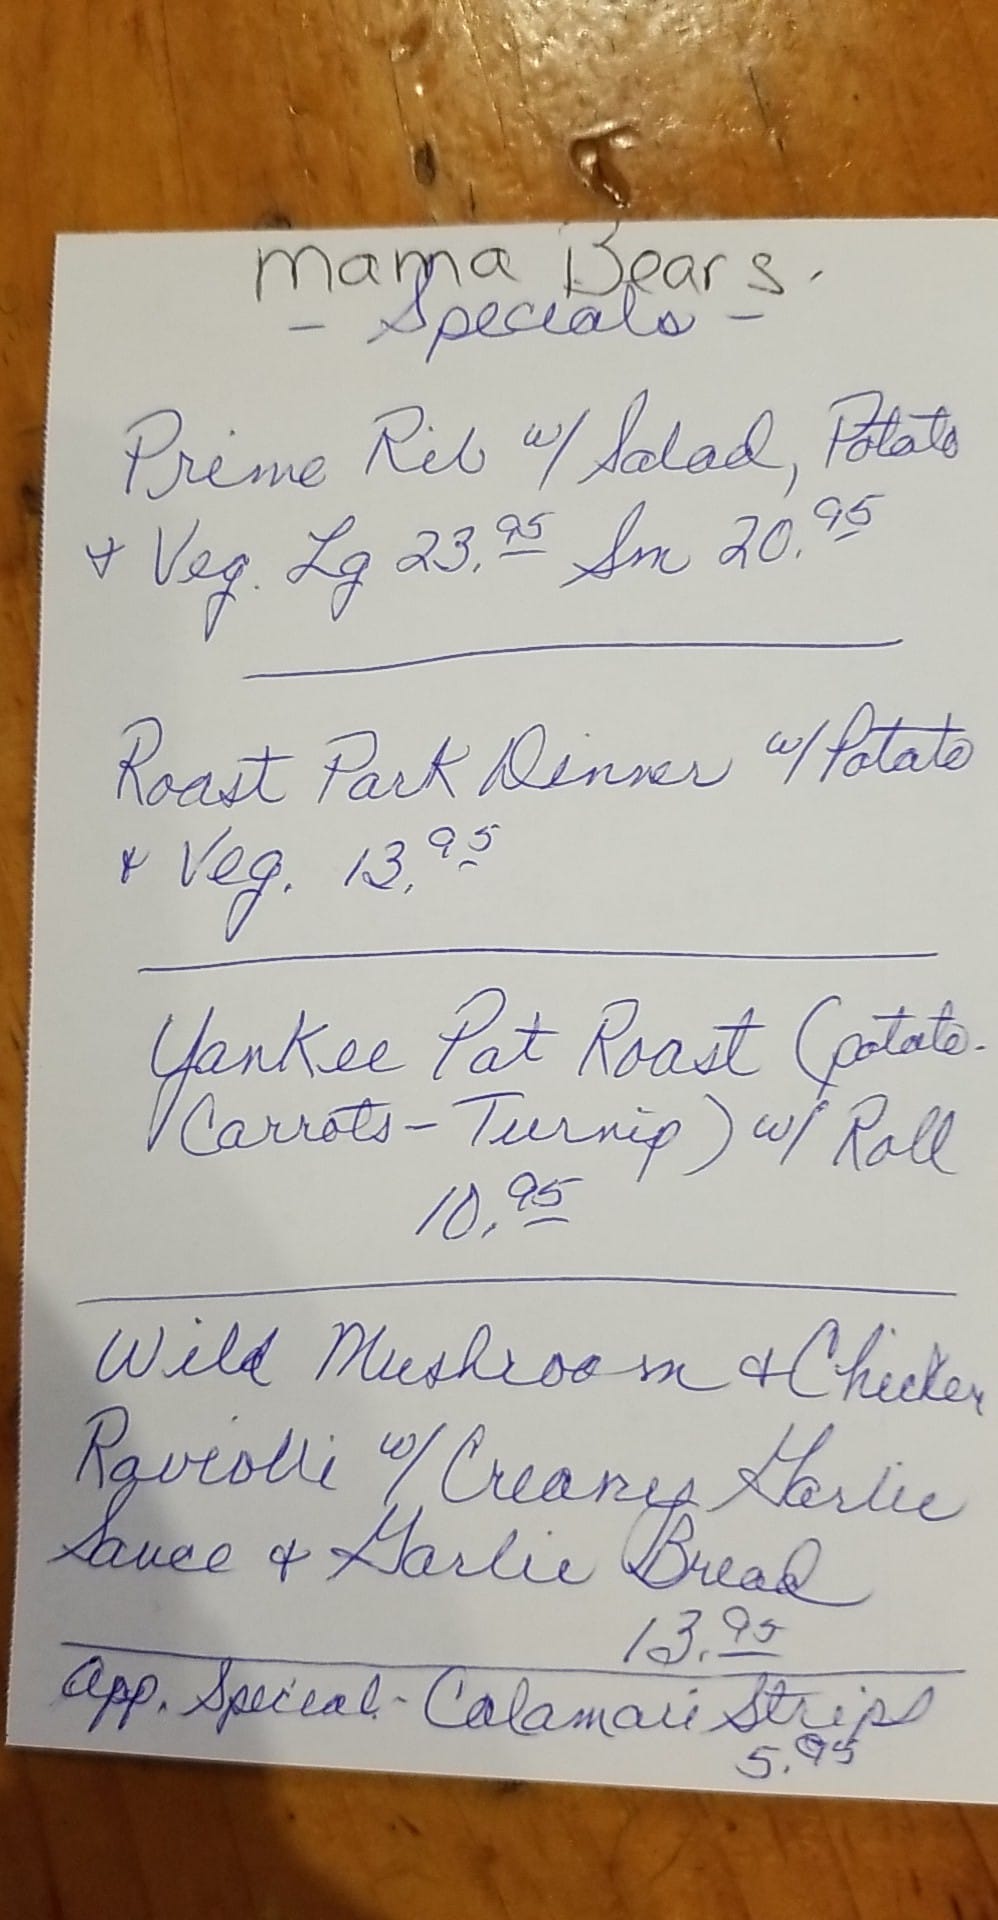 Mama Bears.
- Specials -
Prime Rib w/ Salad, Potato
+ Veg. Lg 23.95 Sm 20.95
Roast Pork Dinner w/ Potato
+ Veg. 13.95
Yankee Pot Roast (potato-
Carrots-Turnip) w/ Roll
10.95
Wild Mushroom + Chicken
Raviolli w/ Creamy Garlic
Sauce + Garlic Bread
13.95
App. Special - Calamari Strips
5.95